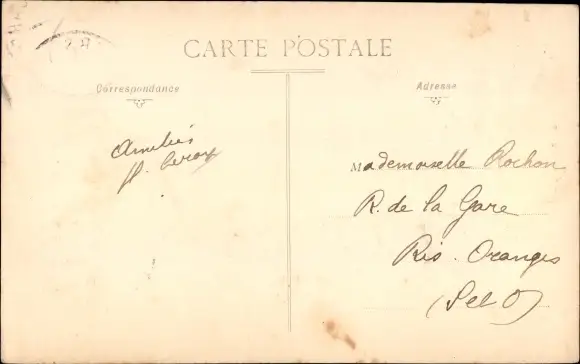 CARTE POSTALE
Correspondance
Adresse
Amitiés
Mademoiselle Rochon
R. de la Gare
Ris. Oranges
(S et O)